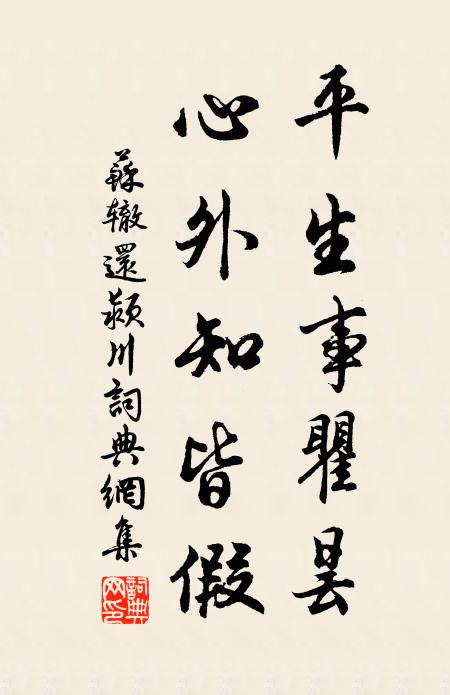 平生事瞿曇
心外知皆假
蘇轍還潁川詞典網集
詞典網印